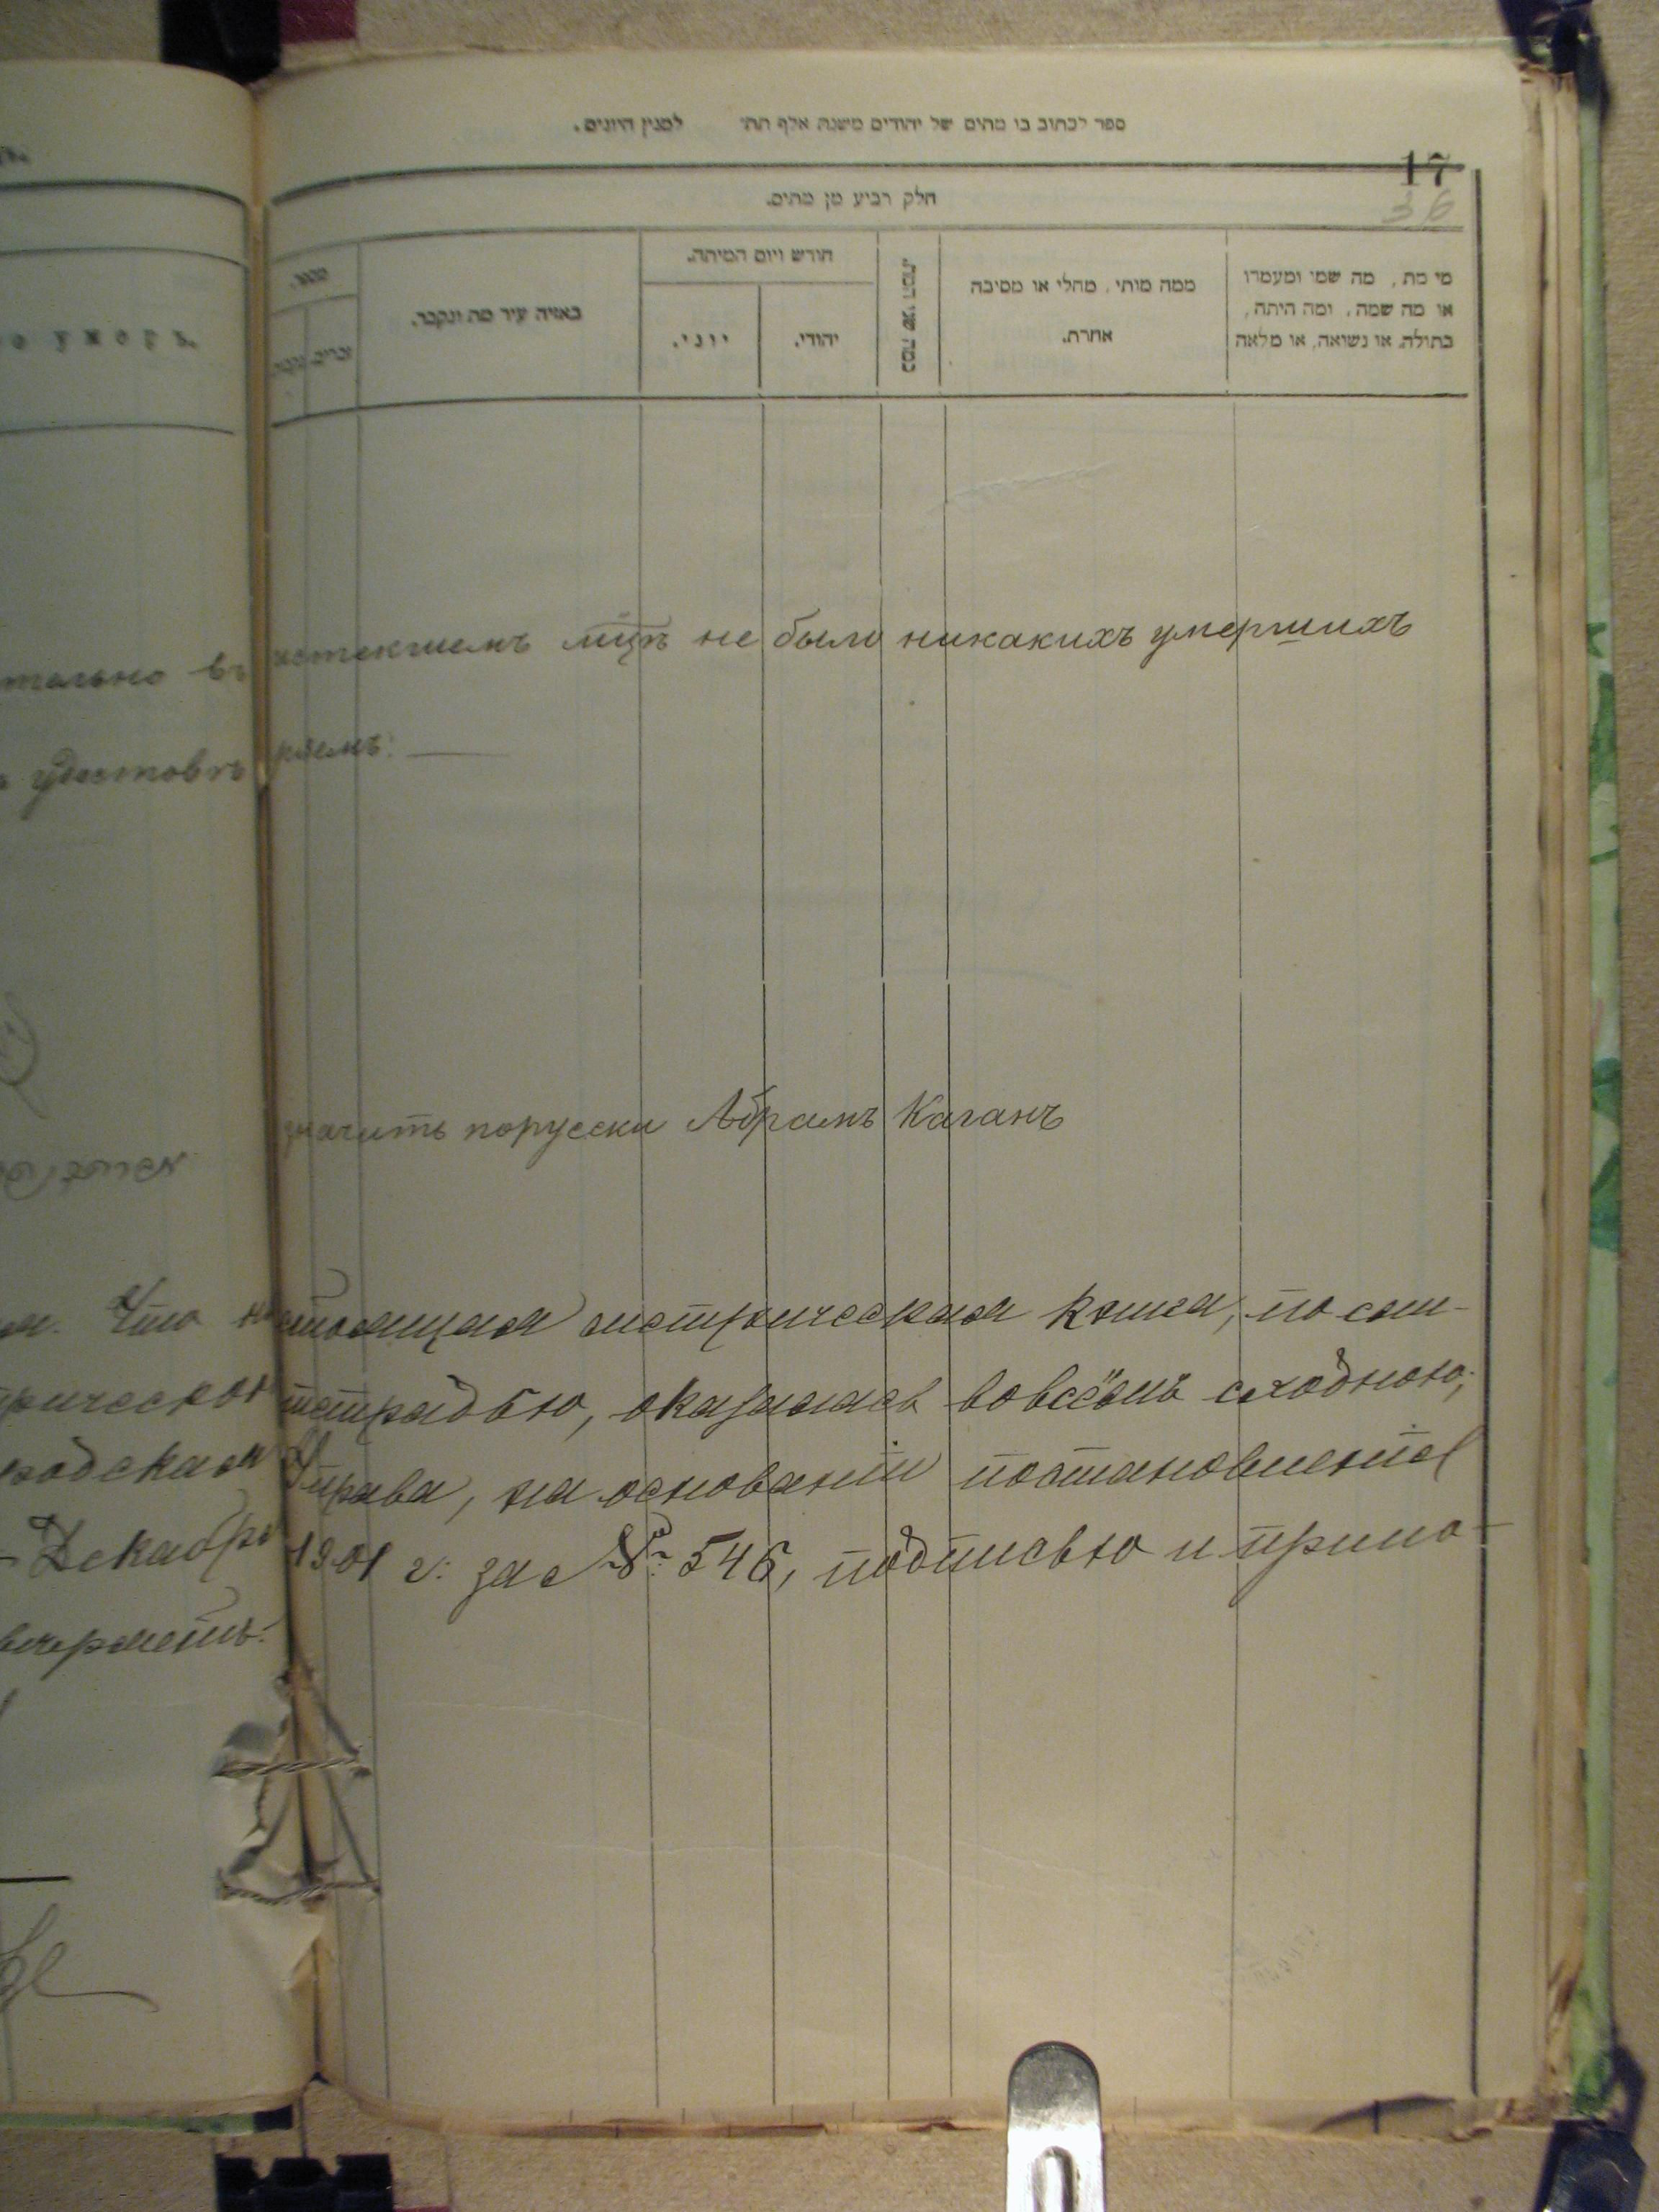 ספר לכתוב בו מתים של יהודים משנת אלף תתי למנין היונים.
17
36
חלק רביעי מן מתים.
מי מת, מה שמו ומעמדו
או מה שמה, ומה היתה,
בתולה, או נשואה, או מלאה
ממה מותו, מחלי או מסיבה
אחרת.
כמה שני המת.
חודש ויום המיתה.
יהודי.
יוני.
באיזה עיר מת ונקבר.
מספר.
זכרים
о умеръ.
тельно въ истекшемъ мцѣ не было никакихъ умершихъ
удостовѣряемъ:
значитъ порусски Абрамъ Каганъ
Что настоящая метрическая книга, по сли-
рическою тетрадью, оказалась вовсёмъ сходною;
родская Управа, на основаніи постановленія
Декабря 1901 г. за № 546, подписью и прило-